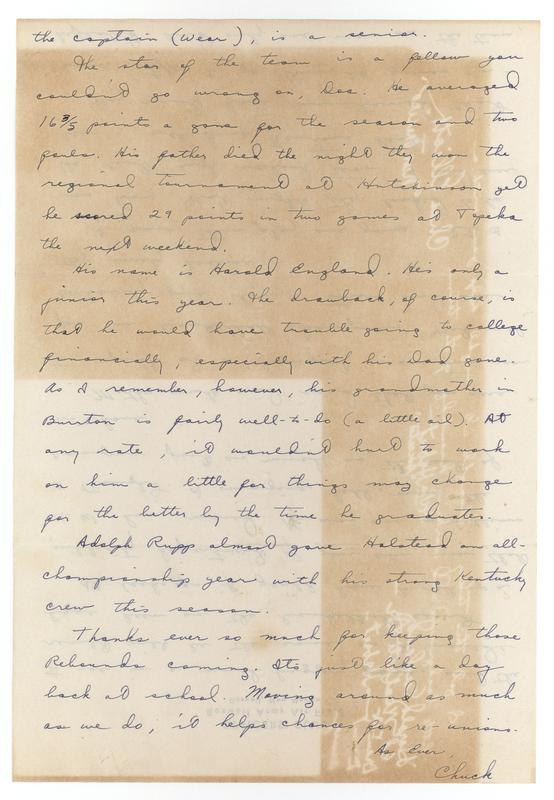 the captain (Wear), is a senior.
The star of the team is a fellow you
couldn't go wrong on, Doc. He averaged
16 3/5 points a game for the season and two
fouls. His father died the night they won the
regional tournament at Hutchinson yet
he scored 29 points in two games at Topeka
the next weekend.
His name is Harold England. He's only a
junior this year. The drawback, of course, is
that he would have trouble going to college
financially, especially with his Dad gone.
As I remember, however, his grandmother in
Burrton is fairly well-to-do (a little oil). At
any rate, it wouldn't hurt to work
on him a little for things may change
for the better by the time he graduates.
Adolph Rupp almost gave Halstead an all-
championship year with his strong Kentucky
crew this season.
Thanks ever so much for keeping those
Rebounds coming. It's just like a day
back at school. Moving around as much
as we do, it helps chances for re-unions.
As Ever,
Chuck